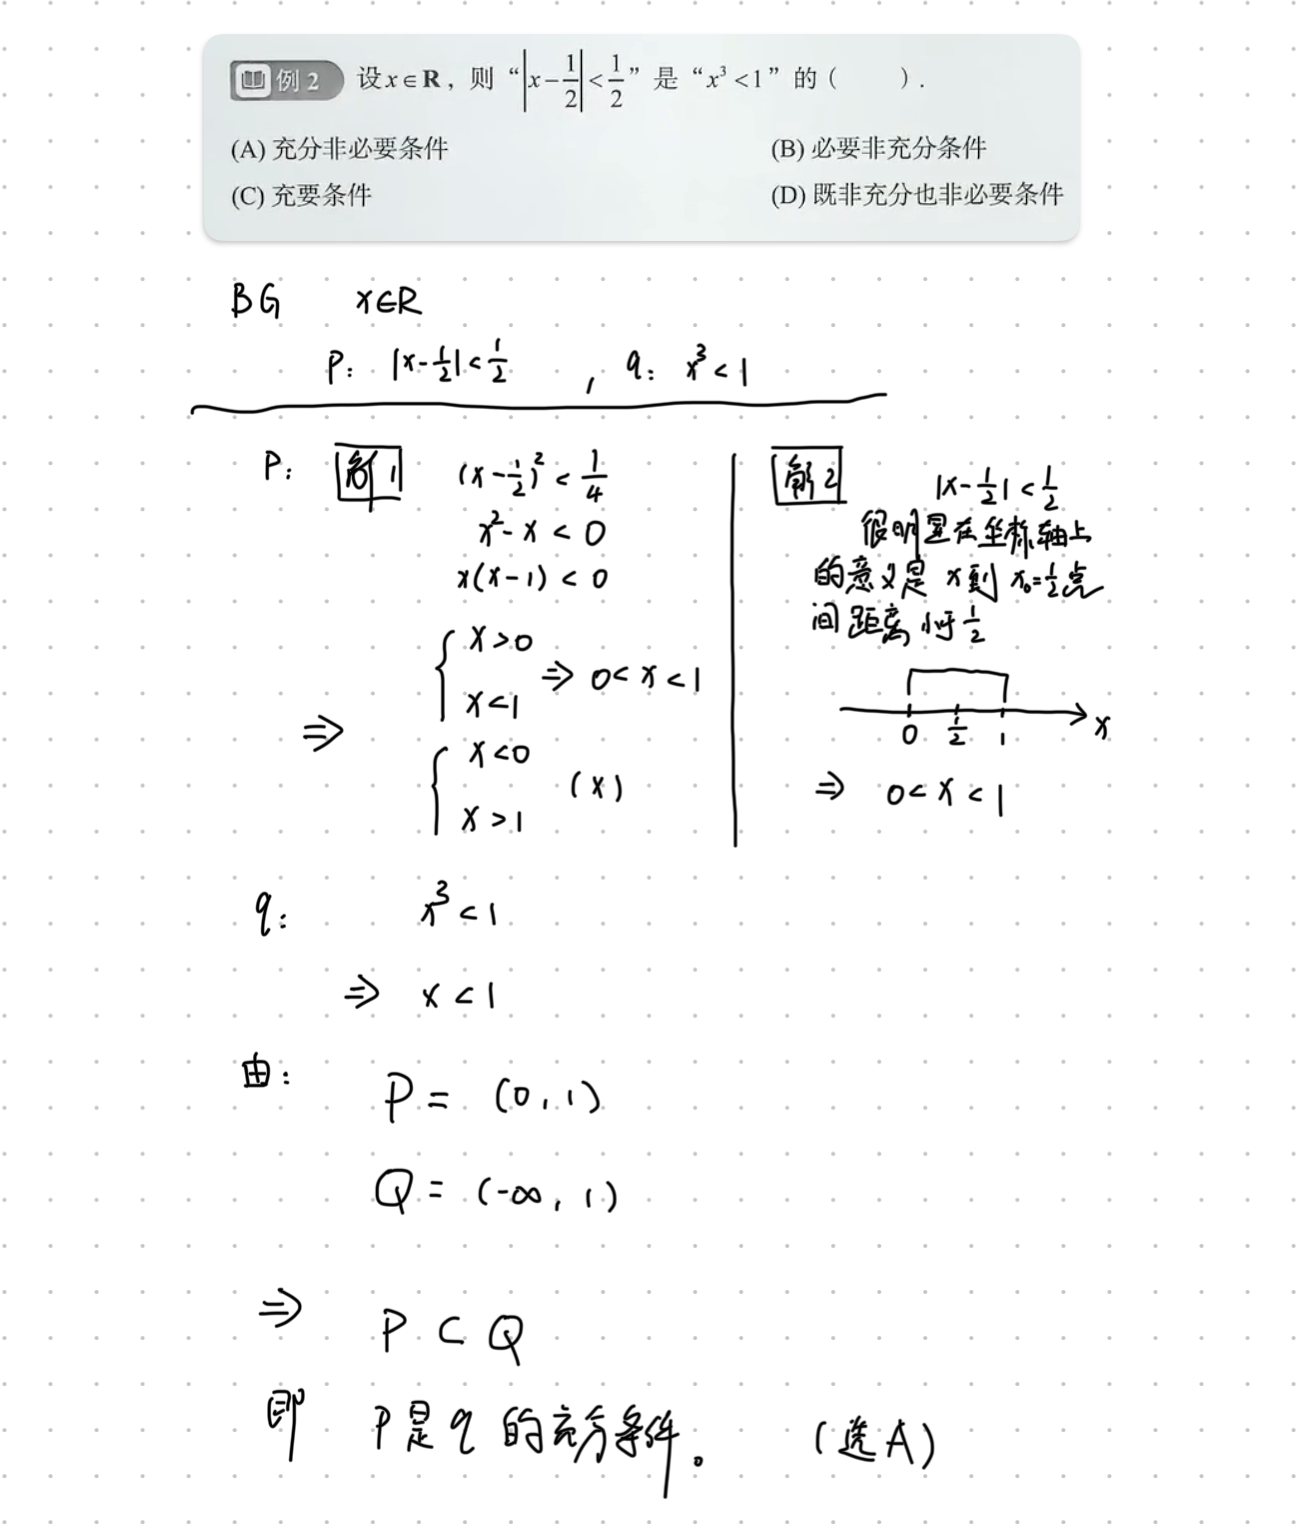 例 2 设 x∈R，则 “|x-1/2|<1/2” 是 “x³<1” 的（　　）.
(A) 充分非必要条件 (B) 必要非充分条件
(C) 充要条件 (D) 既非充分也非必要条件
BG x∈R
P: |x-1/2|<1/2 , q: x³<1
P: 解1 (x-1/2)²<1/4
x²-x<0
x(x-1)<0
{ x>0
x<1 ⇒ 0<x<1
⇒
{ x<0
x>1 (×)
解2 |x-1/2|<1/2
很明显在坐标轴上
的意义是 x到 x₀=1/2点
间距离小于1/2
0 1/2 1 x
⇒ 0<x<1
q: x³<1
⇒ x<1
由: P = (0,1)
Q = (-∞,1)
⇒ P⊂Q
即 P是q的充分条件。 (选A)